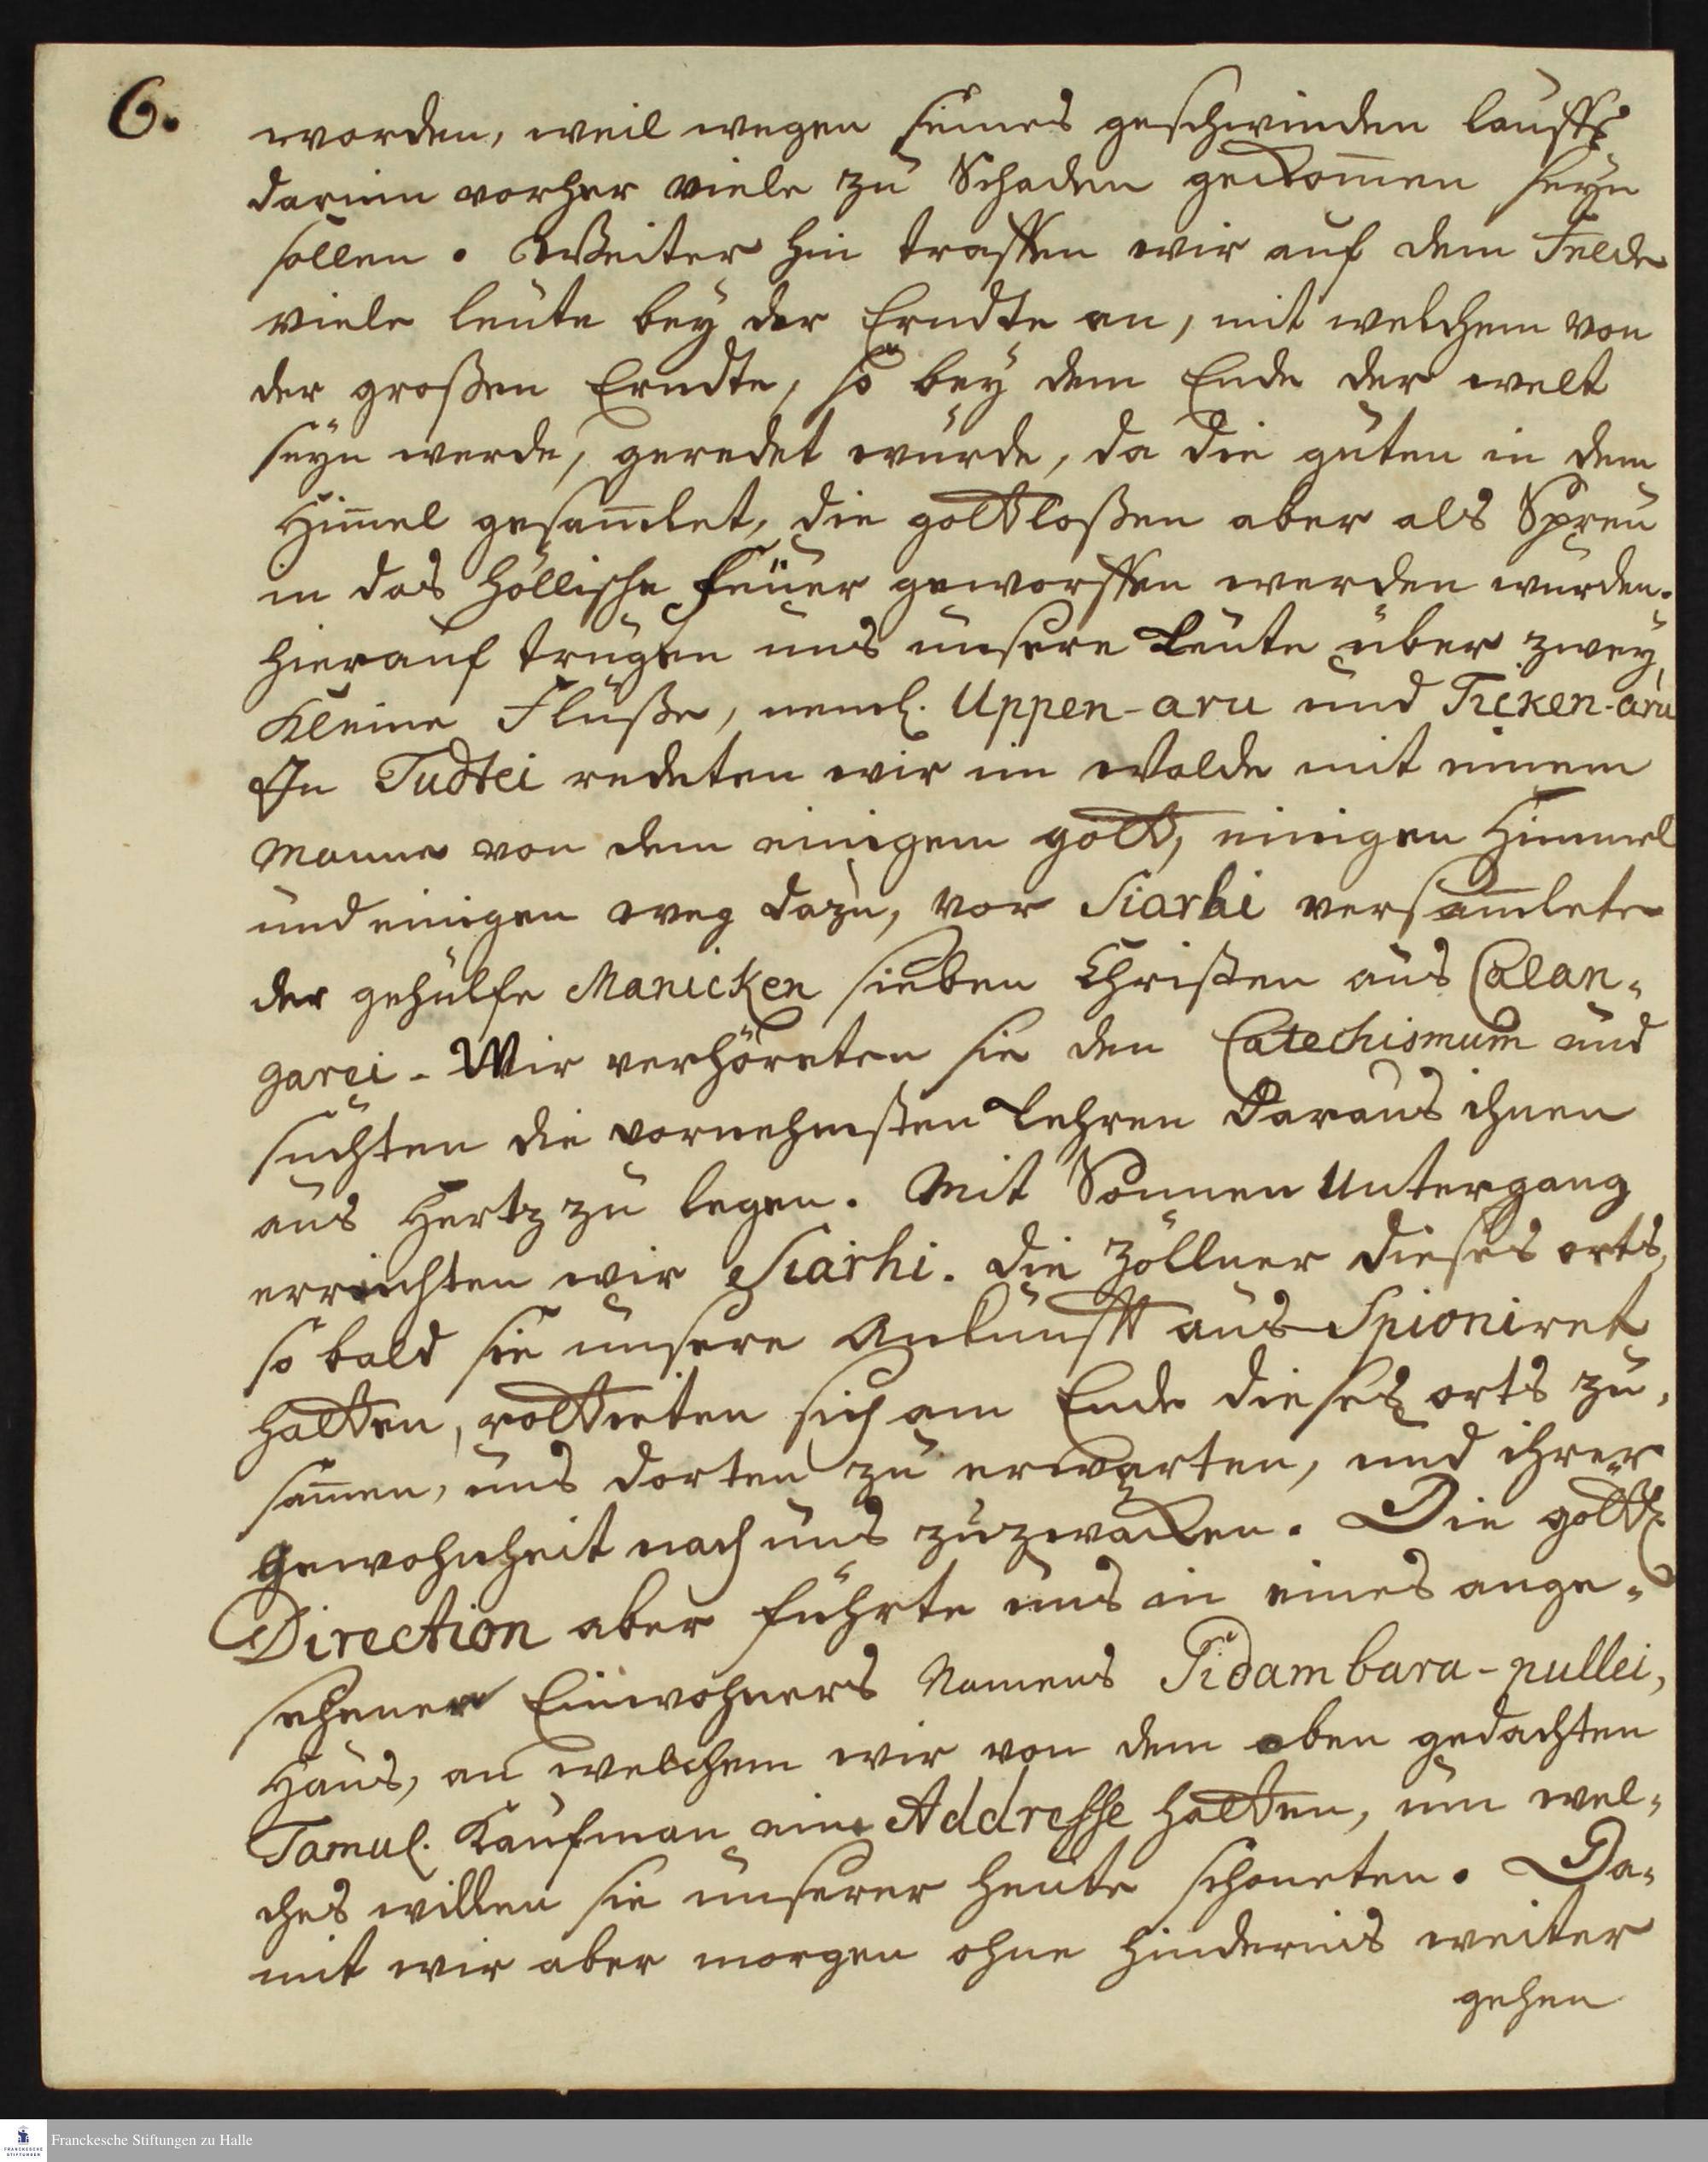 6.
worden, weil wegen seines geschwinden lauffs
darinn vorher viele zu Schaden gekom̅en seyn
sollen. Weiter hin traffen wir auf dem Felde
viele leute bey der Erndte an, mit welchem von
der großen Erndte, so bey dem Ende der welt
seyn werde, geredet wurde, da die guten in dem
Him̅el gesam̅let, die gottloßen aber als Spreu
in das höllische feüer geworffen werden wurden.
hierauf trugen uns unsere Leute über zwey
kleine Flüße, neml. Uppen-aru und Ticken-aru
In Tudtei redeten wir im Walde mit einem
Manne von dem einigem gott, einigen Himmel
und einigen weg dazu, vor Siarhi versam̅lete
der gehülfe Manicken sieben Christen aus Calan-
garei. Wir verhöreten sie den Catechismum und
suchten die vornehmsten Lehren daraus ihnen
ans Hertz zu legen. Mit Sonnen Untergang
erreichten wir Siarhi. die Zöllner dieses orts,
so bald sie unsere Ankunfft aus Spioniret
hatten, rotteten sich am Ende dieses orts zu,
sam̅en, uns dorten zu erwarten, und ihrer
gewohnheit nach uns zuzwacken. Die göttl.
Direction aber führte uns in eines ange-
sehener Einwohners Namens Tidambara-pullei,
Haus, an welchem wir von dem oben gedachten
Tamul. Kaufman eine Addresse hatten, um wel-
ches willen sie unserer heute schoneten. Da-
mit wir aber morgen ohne Hindernis weiter
gehen
Franckesche Stiftungen zu Halle
FRANCKESCHE
STIFTUNGEN